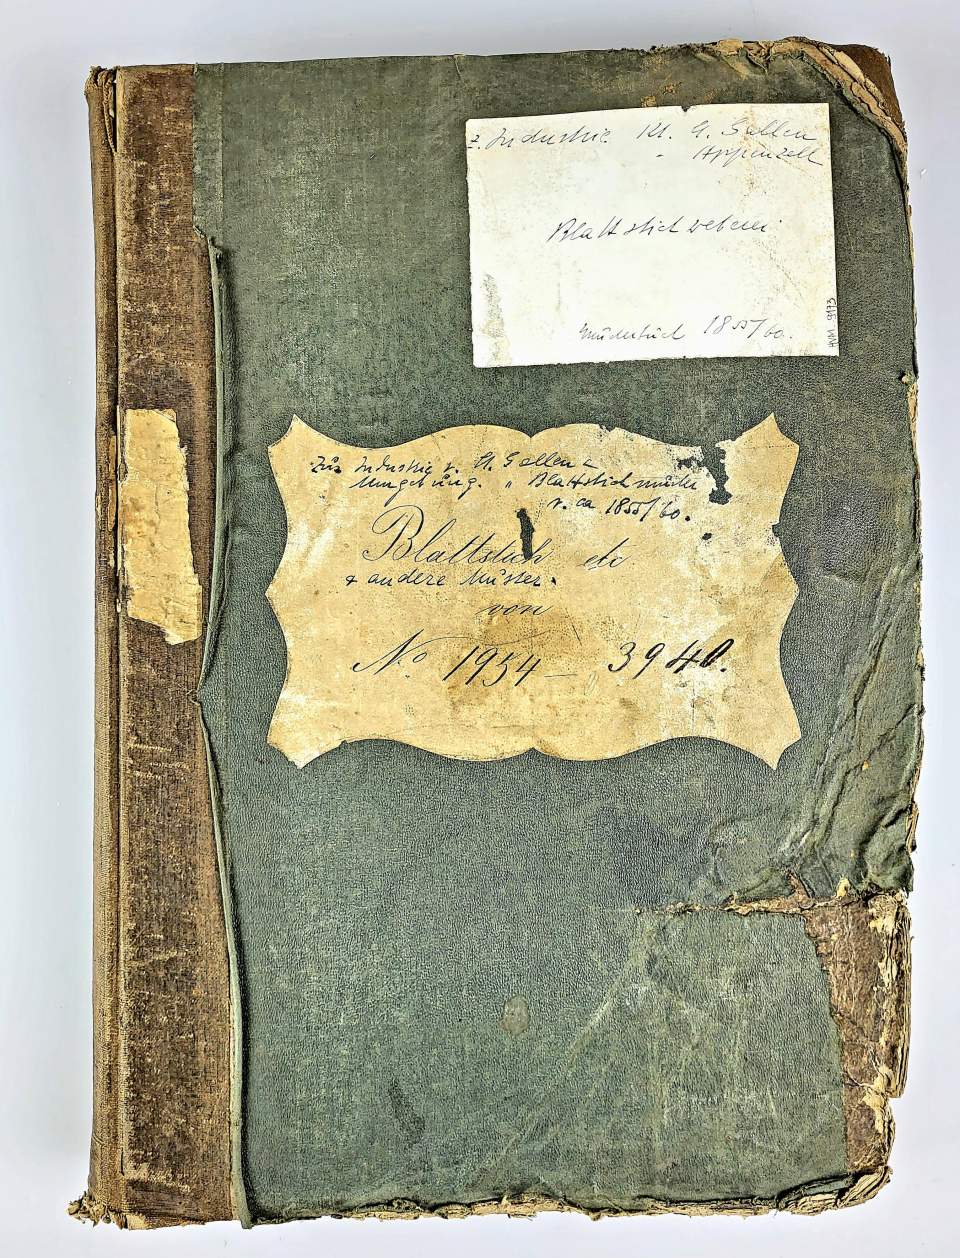 z. Industrie Kt. St. Gallen
" Appenzell
Blattstichweberei
Musterbuch 1855/60.
HVM 9173
Zur Industrie v. St. Gallen &
Umgebung. " Blattstichmuster
v. ca 1855/60.
Blattstich etc
+ andere Muster.
von
No. 1954 — 3940.